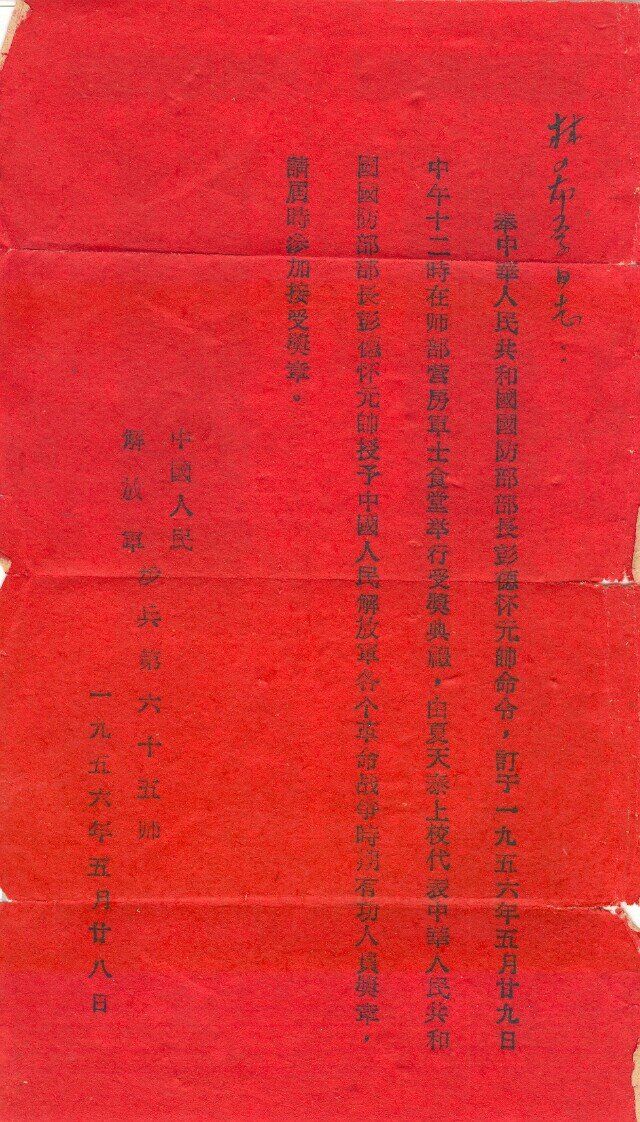 林 同志：
奉中華人民共和國國防部部長彭德怀元帥命令，訂于一九五六年五月廿九日
中午十二時在师部营房軍士食堂举行受獎典禮，由夏天泰上校代表中華人民共和
國國防部部長彭德怀元帥授予中國人民解放軍各个革命战爭時期有功人員獎章，
請屆時參加接受獎章。
中國人民
解放軍步兵第六十五师
一九五六年五月廿八日